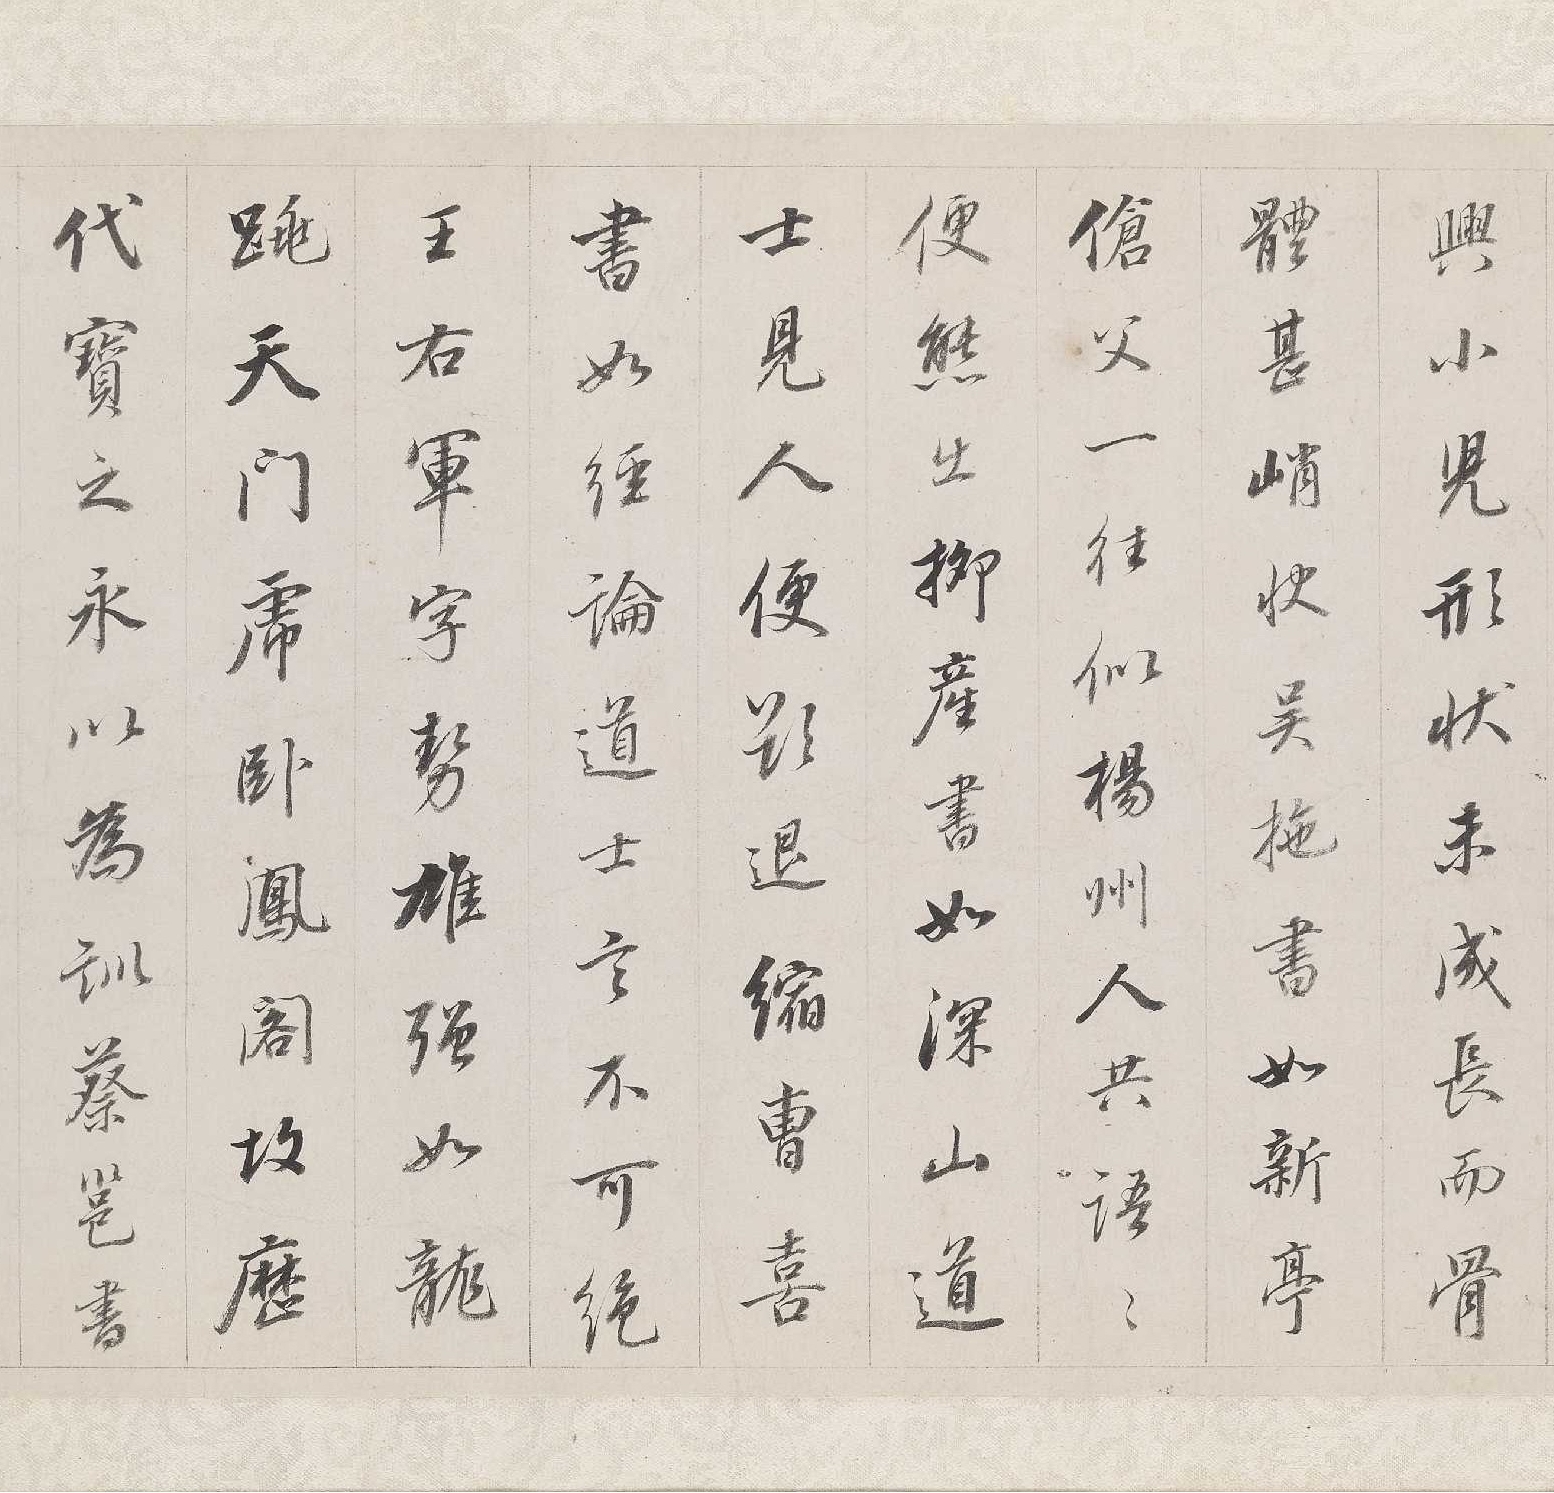 興小児形状未成長而骨
體甚峭快吴拖書如新亭
傖父一往似楊州人共語〻
便態出柳產書如深山道
士見人便欲退縮曹喜
書如經論道士言不可絕
王右軍字勢雄强如龍
跳天门虎卧鳳閣故歷
代寶之永以為訓蔡邕書